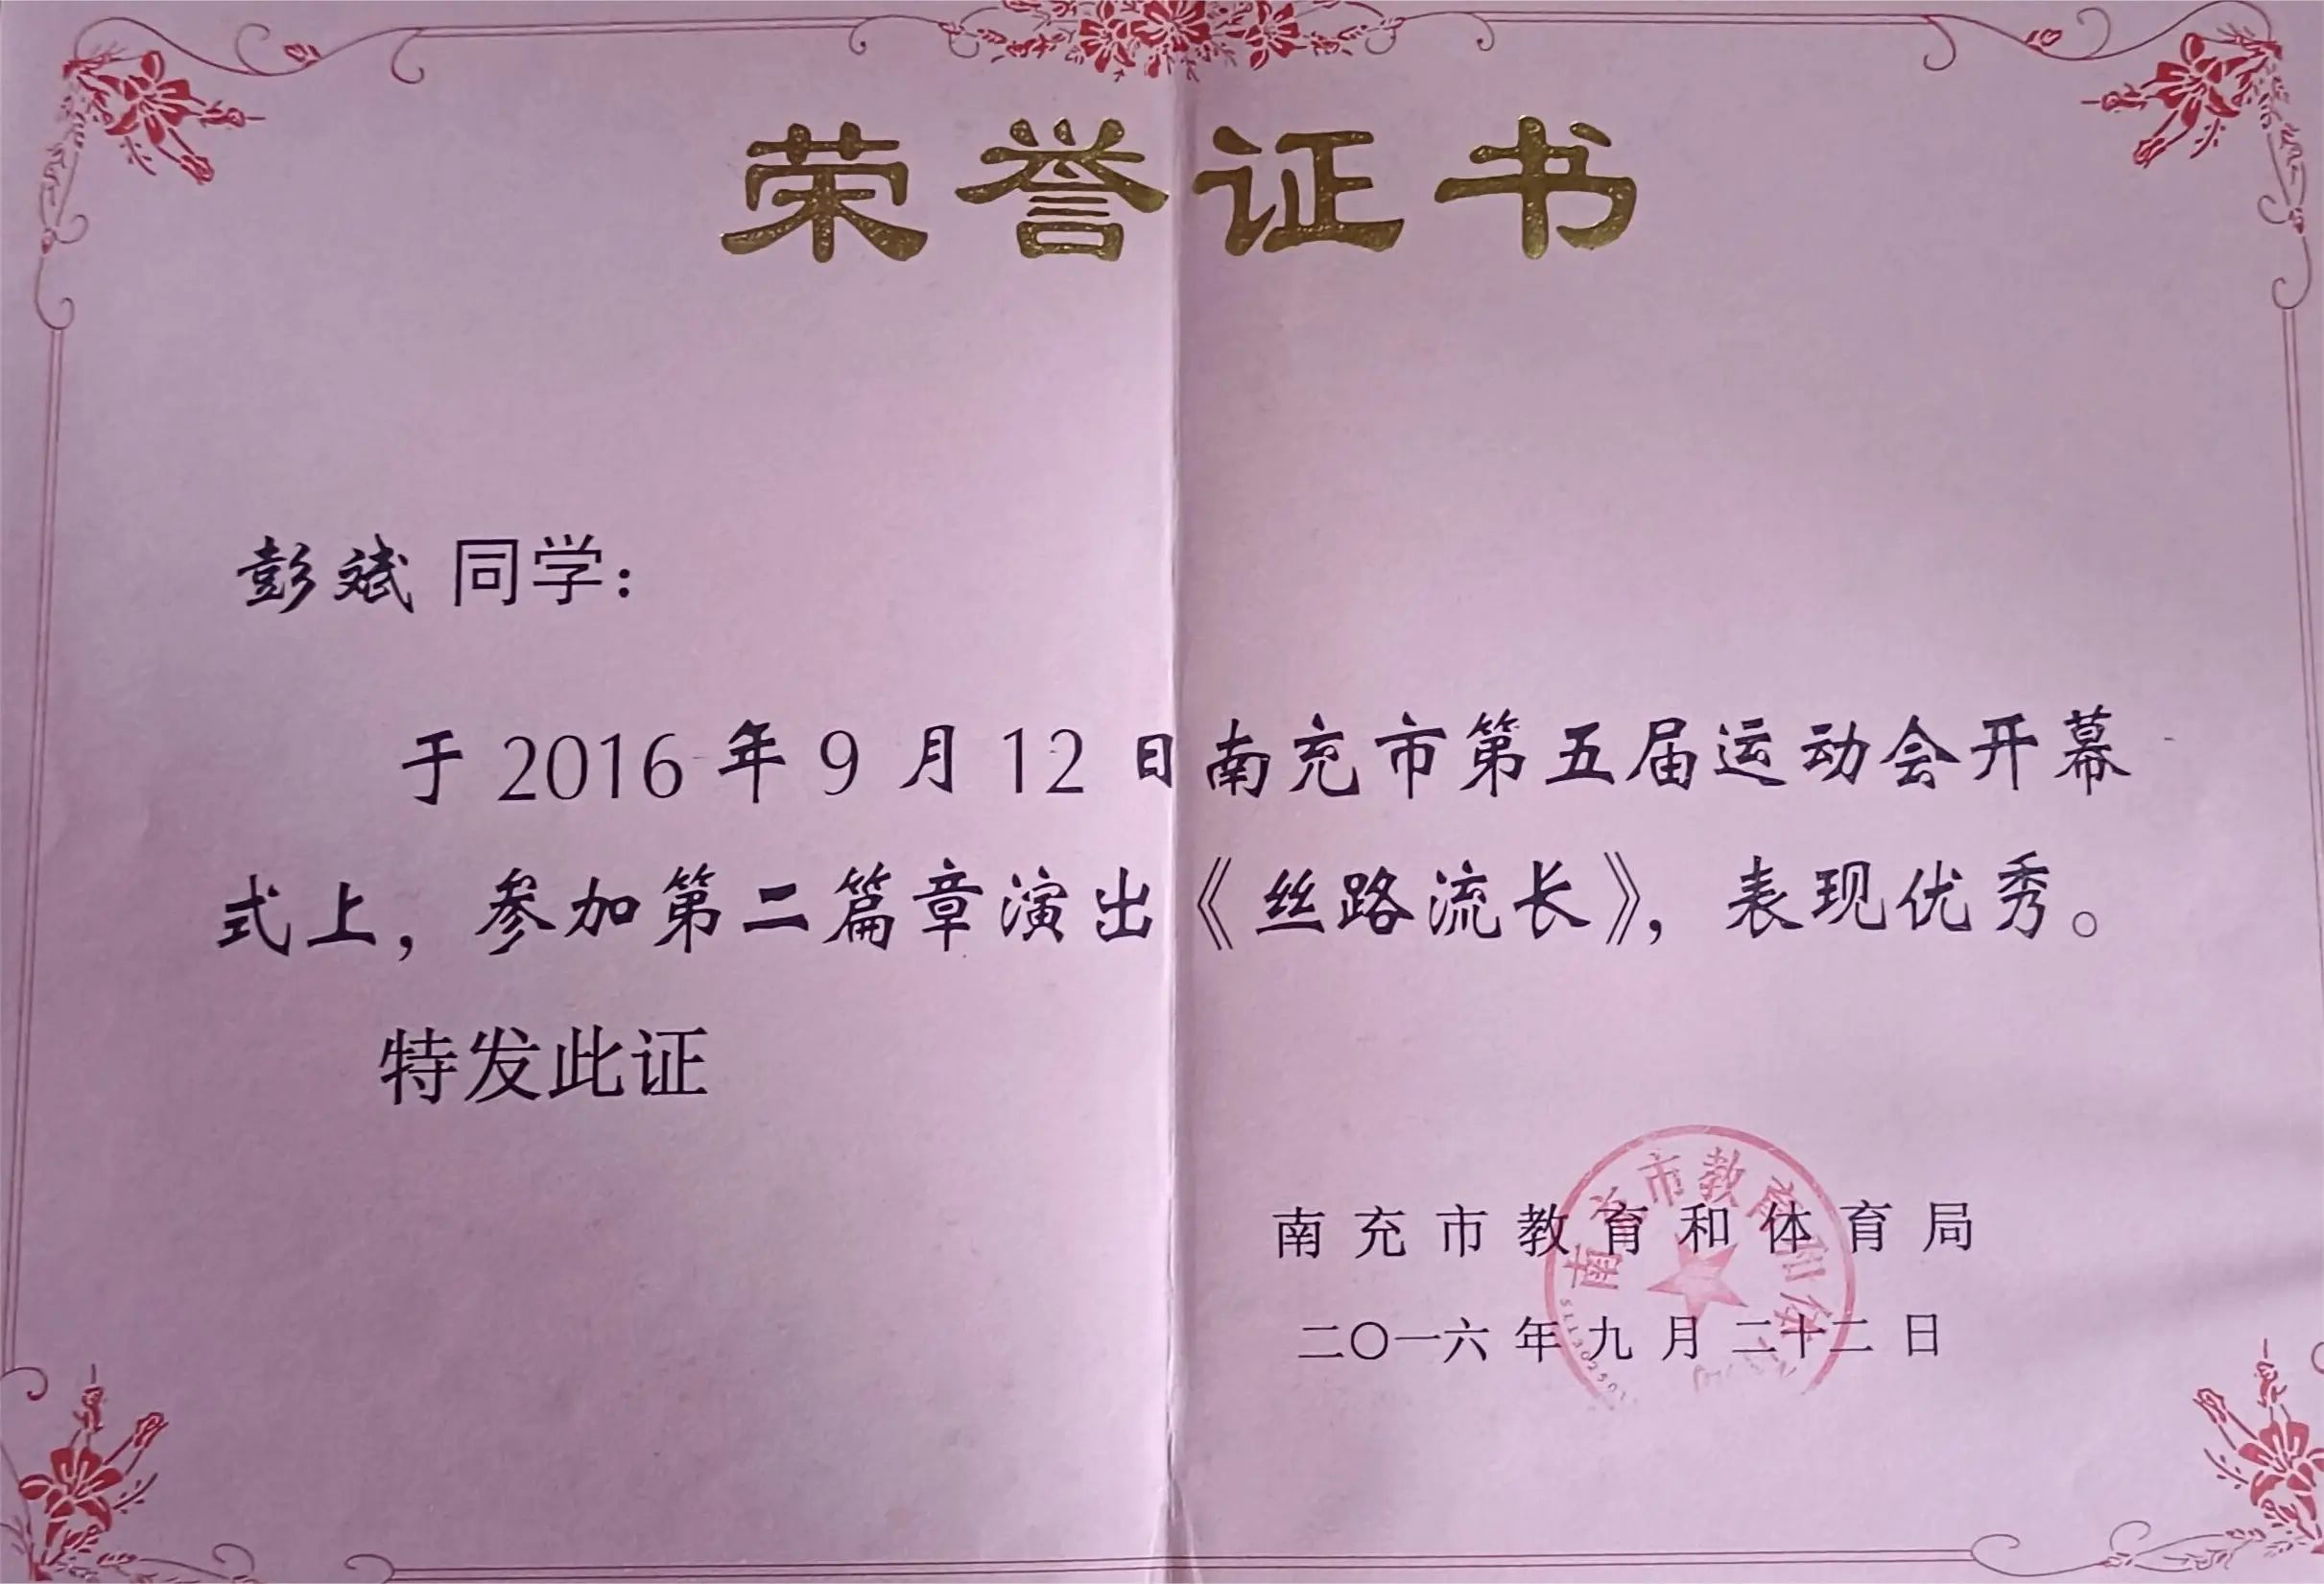 荣誉证书
彭斌 同学：
于 2016 年 9 月 12 日南充市第五届运动会开幕
式上，参加第二篇章演出《丝路流长》，表现优秀。
特发此证
南充市教育和体育局
二〇一六年九月二十二日
南充市教育和体